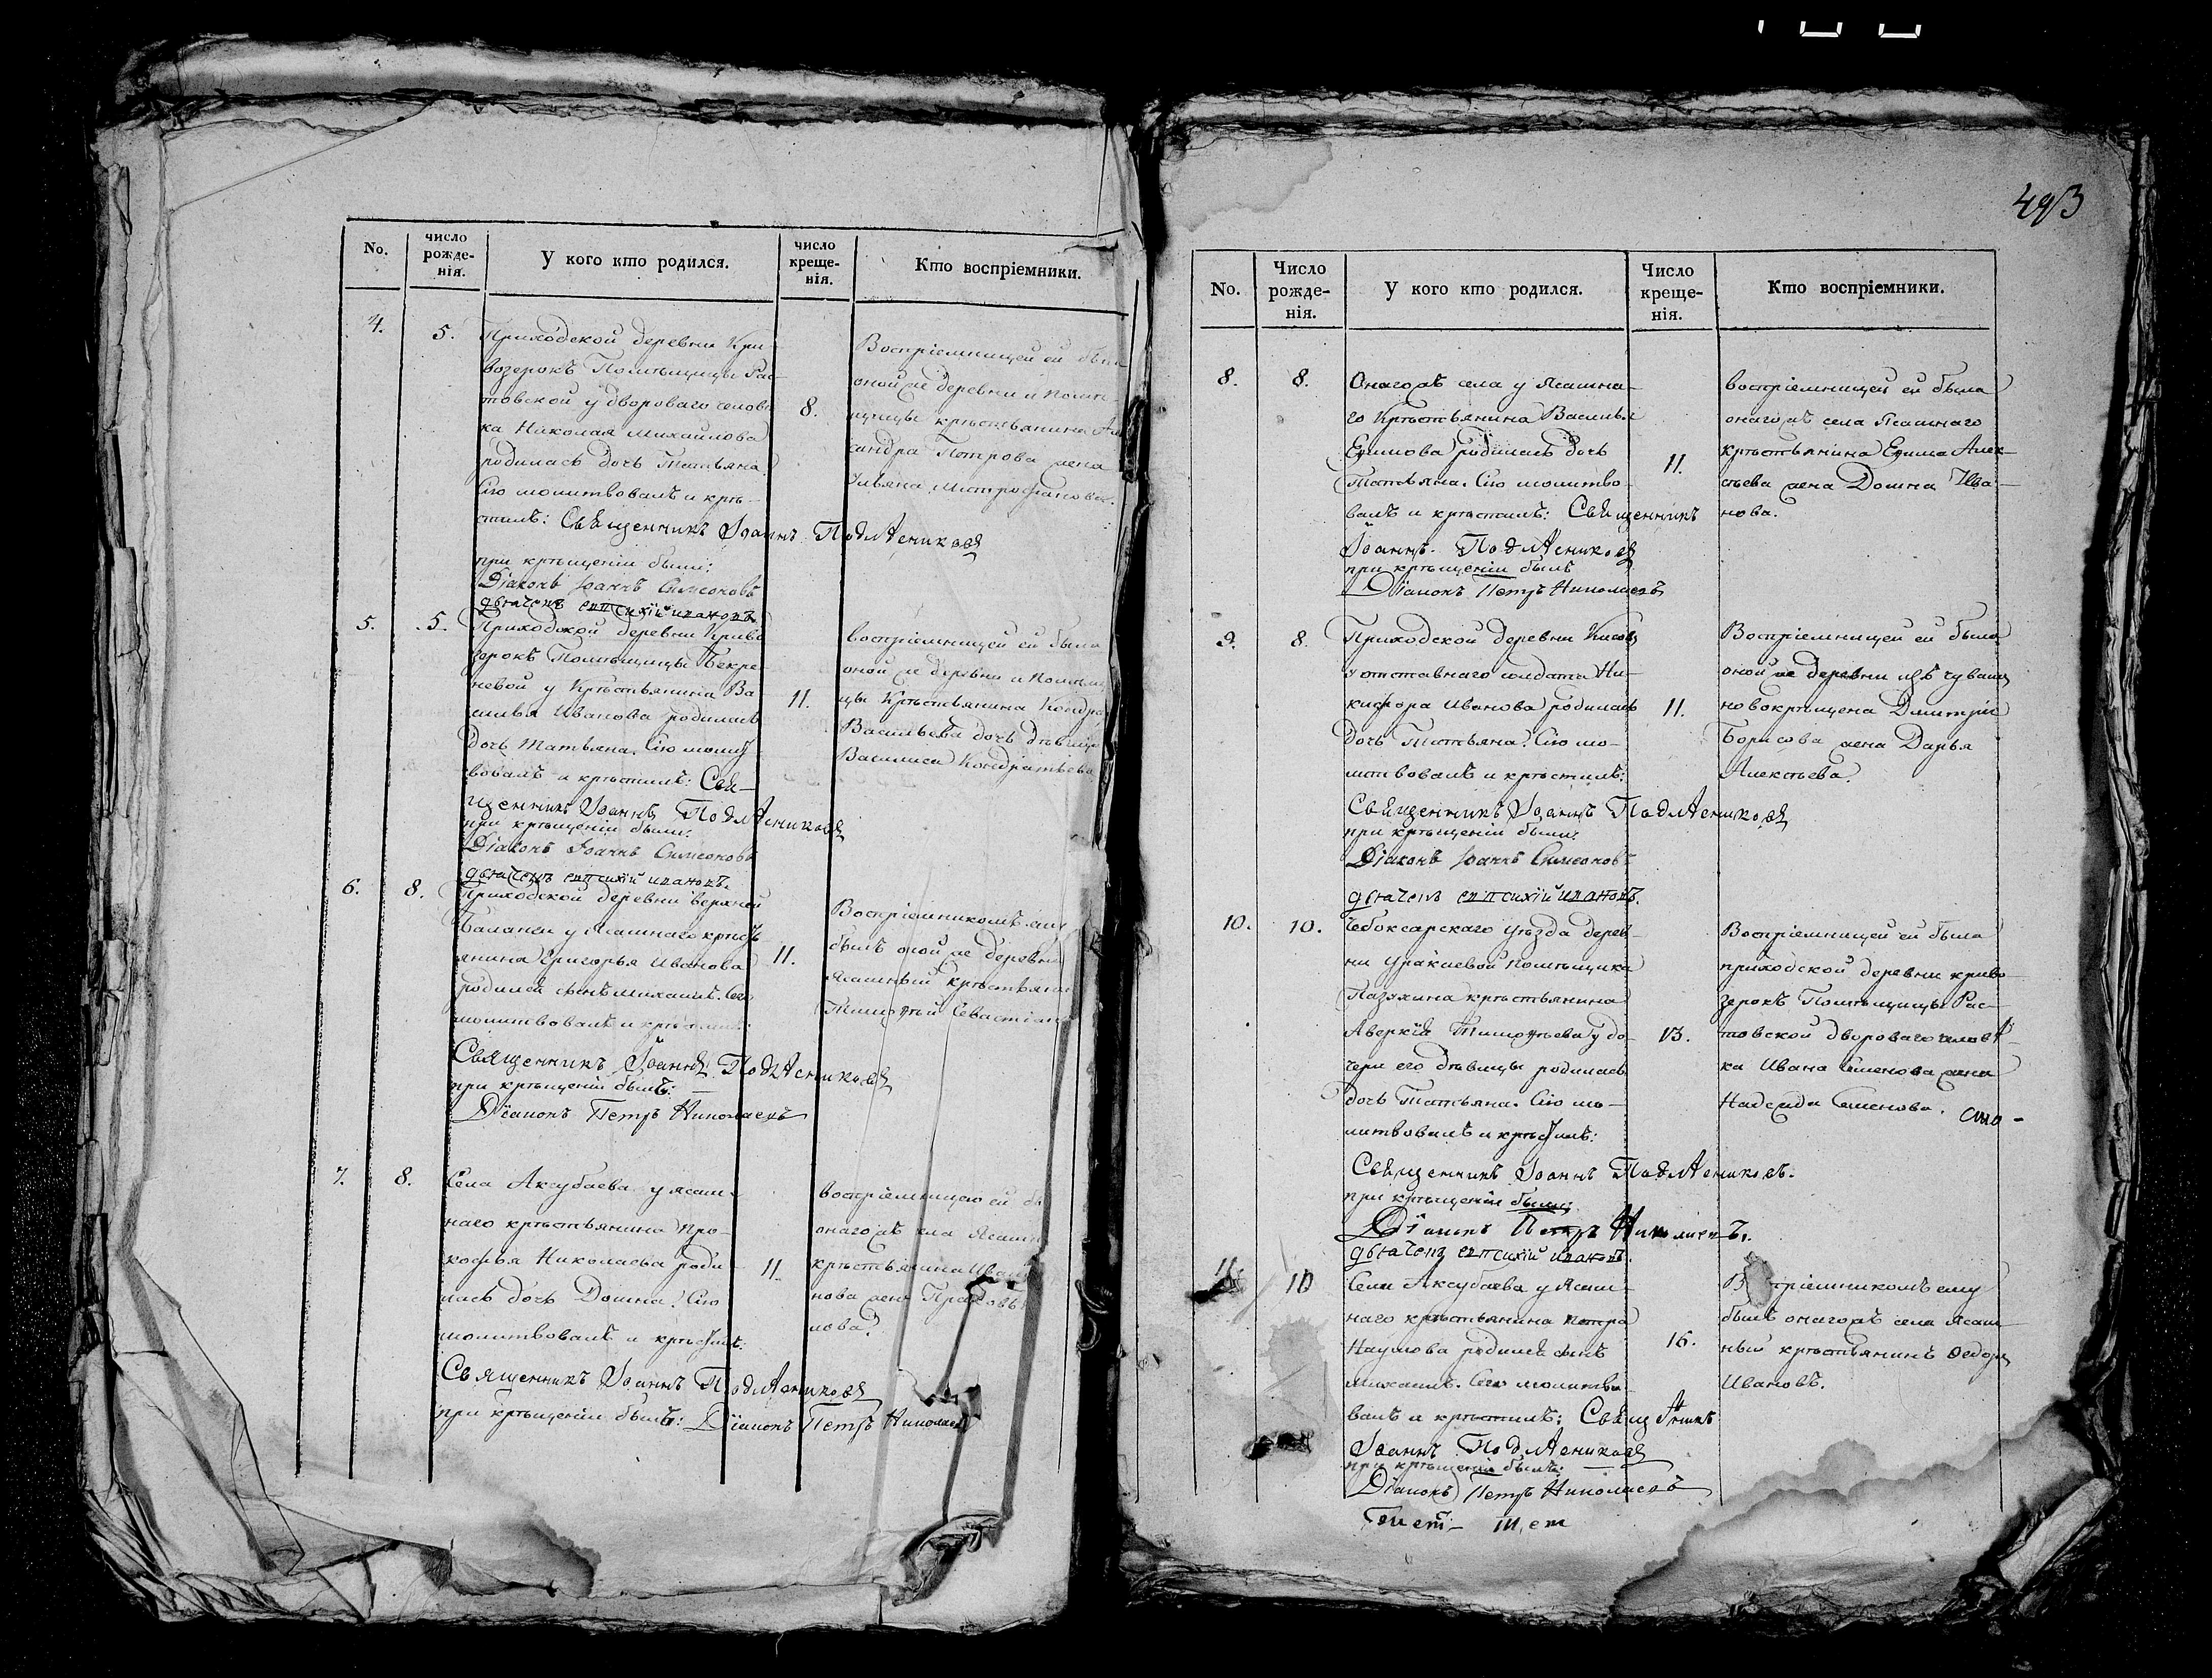 493
No.
число рожде-нія.
У кого кто родился.
число креще-нія.
Кто воспріемники.
4.
5.
Приходской деревни Кри-
возерокъ Помѣщицы Рас-
товской у двороваго челов
ка Николая Михайлова
родилась дочь Татьяна.
Сію молитвовалъ и крѣ-
стилъ: Священникъ Іоаннъ
при крѣщеніи были:
Діаконъ Іоаннъ Симеоновъ
8.
Воспріемницей ей был
оной же деревни и помѣ
щицы крѣстьянина Ал
сандра Петрова жена
Ульяна Митрофанова.
5.
5.
Приходской деревни Криво
зерокъ Помѣщицы Бекре
невой у Крѣстьянина Ва
силья Иванова родилась
дочь Татьяна. Сію молит
вовалъ и крѣстилъ: Свя-
щенникъ Іоаннъ
при крѣщеніи были:
Діаконъ Іоаннъ Симеоновъ
11.
воспріемницей ей была
оной же деревни и помѣщи
цы Крѣстьянина Кондра
Васильева дочь дѣвица
Василиса Кондратьева
6.
8.
Приходской деревни верхней
Баланды у Ясашнаго крѣсть
янина Григорья Иванова
родился сынъ Михаилъ. Сего
молитвовалъ и крѣстилъ:
Священникъ Іоаннъ
при крѣщеніи былъ:
Діаконъ Петръ Николаевъ
11.
Воспріемникомъ ему
былъ оной же деревни
ясашный крѣстьяни
Тимофѣй Севастіан
7.
8.
Села Аксубаева у ясаш-
наго крѣстьянина Про-
кофья Николаева роди-
лась дочь Домна. Сію
молитвовалъ и крѣстилъ:
Священникъ Іоаннъ
при крѣщеніи былъ: Діаконъ Петръ Николаевъ
11.
воспріемницею ей бы
онагожъ села Ясашн
крѣстьянина Ива
нова жена Прасковья
лова.
No.
Число рожде-нія.
У кого кто родился.
Число креще-нія.
Кто воспріемники.
8.
8.
Онагожъ села у Ясашна-
го Крѣстьянина Василья
Ефимова родилась дочь
Татьяна. Сію молитво-
валъ и крѣстилъ: Священникъ
Іоаннъ.
при крѣщеніи былъ
Діаконъ Петръ Николаевъ
11.
воспріемницей ей была
онагожъ села Ясашнаго
крѣстьянина Ефима Алек-
сѣева жена Домна Ива-
нова.
9.
8.
Приходской деревни
у отставнаго солдата Ни-
кифора Иванова родилась
дочь Татьяна. Сію мо-
литвовалъ и крѣстилъ:
Священникъ Іоаннъ
при крѣщеніи были:
Діаконъ Іоаннъ Симеоновъ
11.
Воспріемницей ей была
оной же деревни изъ чувашъ
новокрѣщена Дмитрія
Борисова жена Дарья
Алексѣева.
10.
10.
Чебоксарскаго уѣзда дерев-
ни Уракаевой помѣщика
Пазухина крѣстьянина
Аверкія Тимофѣева у до-
чери его дѣвицы родилась
дочь Татьяна. Сію мо-
литвовалъ и крѣстилъ:
Священникъ Іоаннъ
при крѣщеніи были:
Діаконъ Петръ Николаевъ.
13.
Воспріемницей ей была
приходской деревни криво-
зерокъ Помѣщицы Рас-
товской двороваго человѣ-
ка Ивана Семенова жена
Надежда Семенова.
11.
10
Села Аксубаева у Ясаш-
наго крѣстьянина Петра
Наумова родился сынъ
Михаилъ. Сего молитво-
валъ и крѣстилъ: Священникъ
Іоаннъ
при крѣщеніи былъ:
Діаконъ Петръ Николаевъ
16.
Воспріемникомъ ему
былъ онагожъ села Ясаш-
ный крѣстьянинъ Ѳедоръ
Ивановъ.